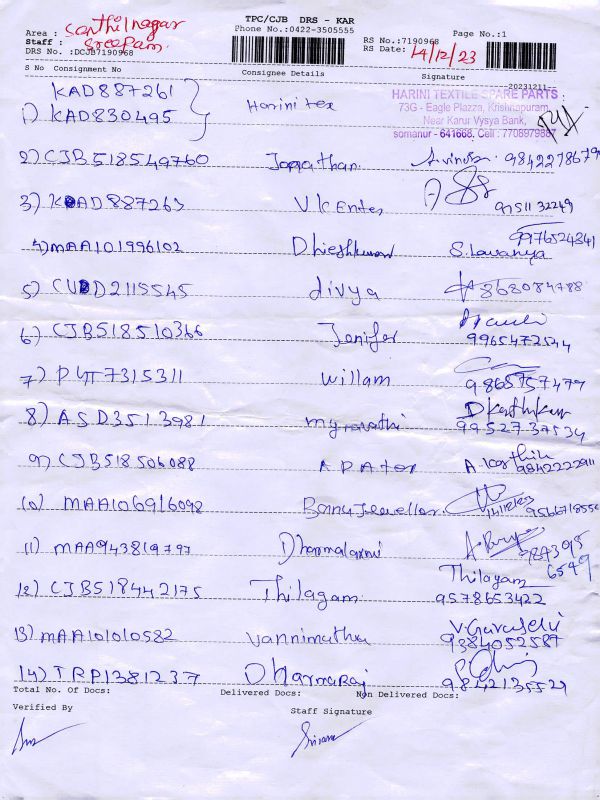 TPC/CJB DRS - KAR
Phone No.:0422-3505555
Page No.:1
Area : Santhilnagar
Staff : Sreeram
DRS No. :DCJB7190968
RS No.:7190968
RS Date: 14/12/23
S No Consignment No Consignee Details Signature
20231211
KAD887261
1) KAD830495 Harini tex
HARINI TEXTILE SPARE PARTS
73G - Eagle Plazza, Krishnapuram,
Near Karur Vysya Bank,
somanur - 641668, Cell : 7708979887
2) CJB518549760 Jagathan 9842278679
3) KAD887263 VK Enter 9751132249
4) MAA101996102 9976524841
S. Lavanya
5) CUDD2115545 divya 8363084788
6) CJB518510366 Jenifer 9965472544
7) P4T7315311 Willam 9865757477
8) ASD3513981 D karthikan
9952737534
9) CJB518506088 A. karthik
9842222911
10) MAA106916098 Jewellar
11) MAA943819797 Dharmalaxmi
12) CJB518442175 Thilagam Thilagam
9578653422
13) MAA101010582 Vannimuthu 9384052587
14) TRP1381237 Dharmaraj 9842135529
Total No. Of Docs: Delivered Docs: Non Delivered Docs:
Verified By Staff Signature